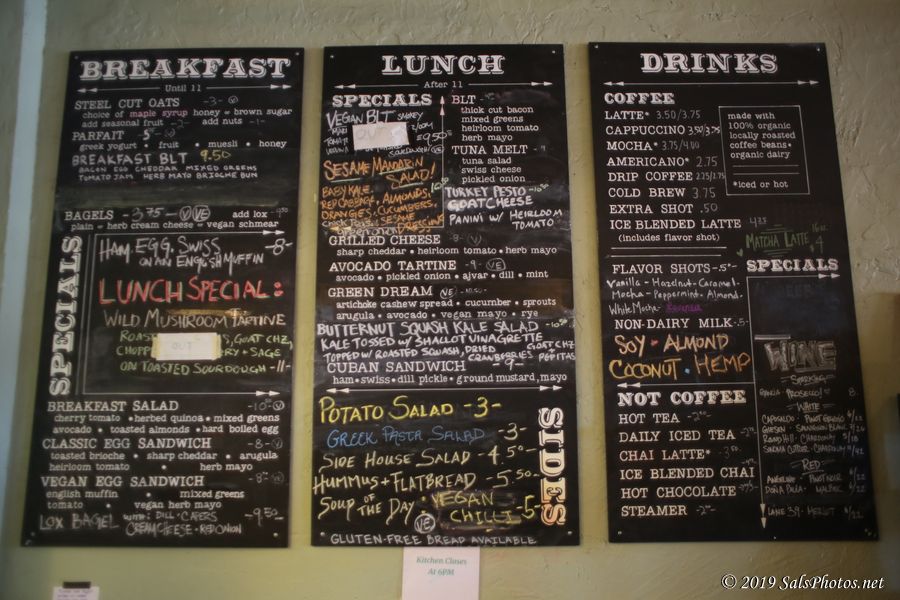 BREAKFAST
Until 11
STEEL CUT OATS -3- V
choice of maple syrup honey • brown sugar
add seasonal fruit add nuts
PARFAIT -5- V
greek yogurt • fruit • muesli • honey
BREAKFAST BLT 9.50
BACON EGG CHEDDAR MIXED GREENS
TOMATO JAM HERB MAYO BRIOCHE BUN
BAGELS -3.75- V VE add lox
plain • herb cream cheese • vegan schmear
SPECIALS
HAM, EGG, SWISS -8-
ON AN ENGLISH MUFFIN
LUNCH SPECIAL:
WILD MUSHROOM TARTINE
GOAT CHZ,
OUT
+ SAGE
ON TOASTED SOURDOUGH -11-
BREAKFAST SALAD -10- V
cherry tomato • herbed quinoa • mixed greens
avocado • toasted almonds • hard boiled egg
CLASSIC EGG SANDWICH -8- V
toasted brioche • sharp cheddar • arugula
heirloom tomato • herb mayo
VEGAN EGG SANDWICH -8- VE
english muffin • mixed greens
tomato • vegan herb mayo
LOX BAGEL WITH: DILL • CAPERS -9.50
CREAM CHEESE • RED ONION
LUNCH
After 11
SPECIALS
VEGAN BLT
OUT
9.50
SESAME MANDARIN
SALAD!
BABY KALE,
RED CABBAGE, ALMONDS,
ORANGES, CUCUMBERS,
SESAME
DRESSING
BLT
thick cut bacon
mixed greens
heirloom tomato
herb mayo
TUNA MELT
tuna salad
swiss cheese
pickled onion
TURKEY PESTO
GOAT CHEESE
PANINI W/ HEIRLOOM
TOMATO
GRILLED CHEESE -8- V
sharp cheddar • heirloom tomato • herb mayo
AVOCADO TARTINE -9- VE
avocado • pickled onion • ajvar • dill • mint
GREEN DREAM VE -10.50-
artichoke cashew spread • cucumber • sprouts
arugula • avocado • vegan mayo • rye
BUTTERNUT SQUASH KALE SALAD
KALE TOSSED W/ SHALLOT VINAGRETTE
TOPPED W/ ROASTED SQUASH, DRIED CRANBERRIES GOAT CHZ PEPITAS
CUBAN SANDWICH -9-
ham • swiss • dill pickle • ground mustard, mayo
SIDES
POTATO SALAD -3-
GREEK PASTA SALAD -3-
SIDE HOUSE SALAD -4.50-
HUMMUS + FLATBREAD -5.50
SOUP OF THE DAY • VEGAN CHILLI -5-
VE
GLUTEN-FREE BREAD AVAILABLE
Kitchen Closes
At 6PM
DRINKS
COFFEE
LATTE* 3.50/3.75
CAPPUCCINO 3.50/3.75
MOCHA* 3.75/4.00
AMERICANO* 2.75
DRIP COFFEE 2.25/2.75
COLD BREW 3.75
EXTRA SHOT .50
ICE BLENDED LATTE 4.25
(includes flavor shot)
made with
100% organic
locally roasted
coffee beans*
organic dairy
*iced or hot
MATCHA LATTE 16oz. 4
FLAVOR SHOTS -.5-
Vanilla - Hazelnut - Caramel
Mocha - Peppermint - Almond
White Mocha
NON-DAIRY MILK -.5-
SOY • ALMOND
COCONUT • HEMP
NOT COFFEE
HOT TEA
DAILY ICED TEA
CHAI LATTE*
ICE BLENDED CHAI
HOT CHOCOLATE
STEAMER
SPECIALS
WINE
SPARKLING
PROSECCO! 8-
WHITE
CAPOSALDO - PINOT GRIGIO
SAUVIGNON BLANC
ROUND HILL - CHARDONNAY
SONOMA CUTRER - CHARDONNAY
RED
ANGELINE - PINOT NOIR
DOÑA PAULA - MALBEC
LINE 39 - MERLOT
© 2019 SalsPhotos.net